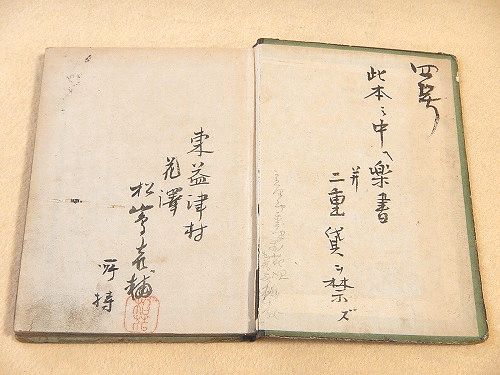 四号
此本ミ中ヘ楽書
并
二重貸ヲ禁ズ
東益津村
花澤
松嶌嘉輔
所持